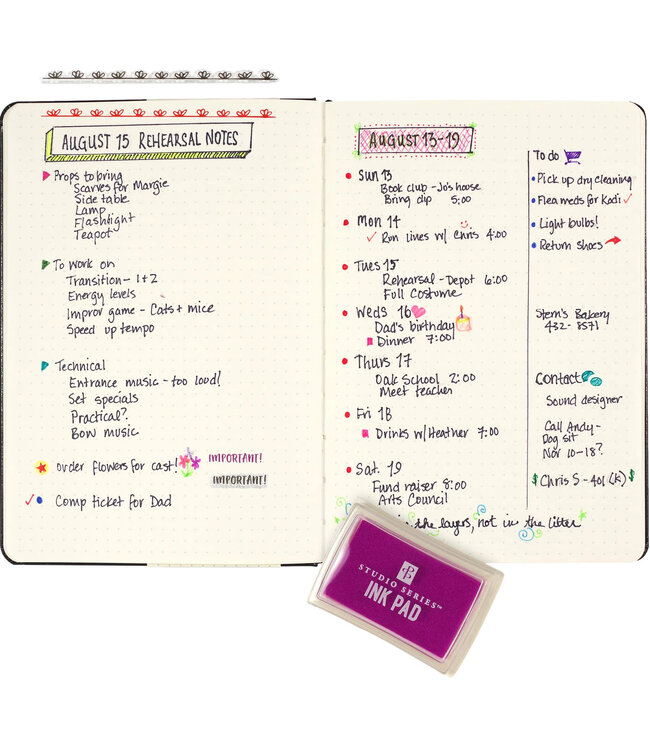 AUGUST 15 REHEARSAL NOTES
Props to bring
Scarves for Margie
Side table
Lamp
Flashlight
Teapot
To work on
Transition - 1+2
Energy levels
Improv game - Cats + mice
Speed up tempo
Technical
Entrance music - too loud!
Set specials
Practical?
Bow music
order flowers for cast!
IMPORTANT!
IMPORTANT!
Comp ticket for Dad
AUGUST 13-19
Sun 13
Book club - Jo's house
Bring dip 5:00
Mon 14
Run lines w/ Chris 4:00
Tues 15
Rehearsal - Depot 6:00
Full Costume
Weds 16
Dad's birthday
Dinner 7:00
Thurs 17
Oak School 2:00
Meet teacher
Fri 18
Drinks w/ Heather 7:00
Sat. 19
Fund raiser 8:00
Arts Council
To do
Pick up dry cleaning
Flea meds for Kodi
Light bulbs!
Return shoes
Stern's Bakery
432-8571
Contact
Sound designer
Call Andy-
Dog sit
Nov 10-18?
$ Chris S - 401(K) $
the layers, not in the litter
STUDIO SERIES™
INK PAD